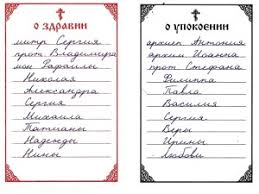 О ЗДРАВИИ
митр Сергия
прот Владимира
мон Рафаилы
Николая
Александра
Сергия
Михаила
Татианы
Надежды
Нины
О УПОКОЕНИИ
архиеп Антония
архим Иоанна
прот Стефана
Филиппа
Павла
Василия
Сергия
Веры
Ирины
Любови